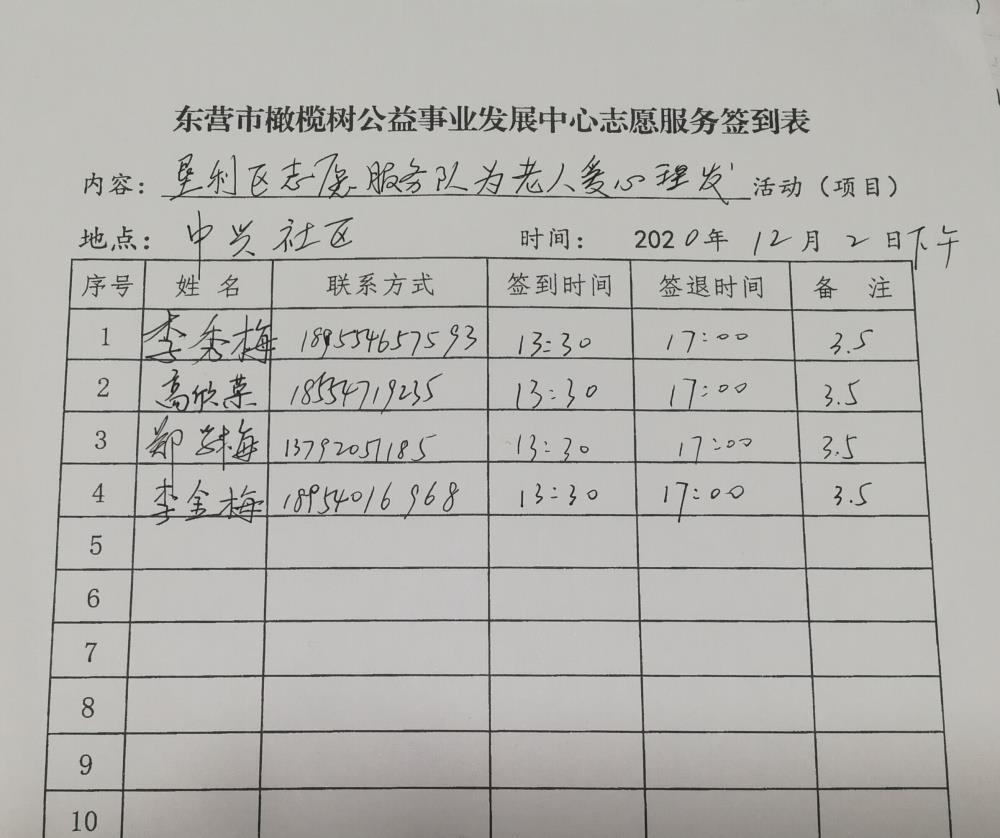 东营市橄榄树公益事业发展中心志愿服务签到表
内容：垦利区志愿服务队为老人爱心理发 活动（项目）
地点：中兴社区 时间：2020年12月2日下午
序号 姓名 联系方式 签到时间 签退时间 备注
1 李秀梅 13:30 17:00 3.5
2 高欣荣 18554719235 13:30 17:00 3.5
3 郑 梅 13792051185 13:30 17:00 3.5
4 李金梅 18954016968 13:30 17:00 3.5
5
6
7
8
9
10